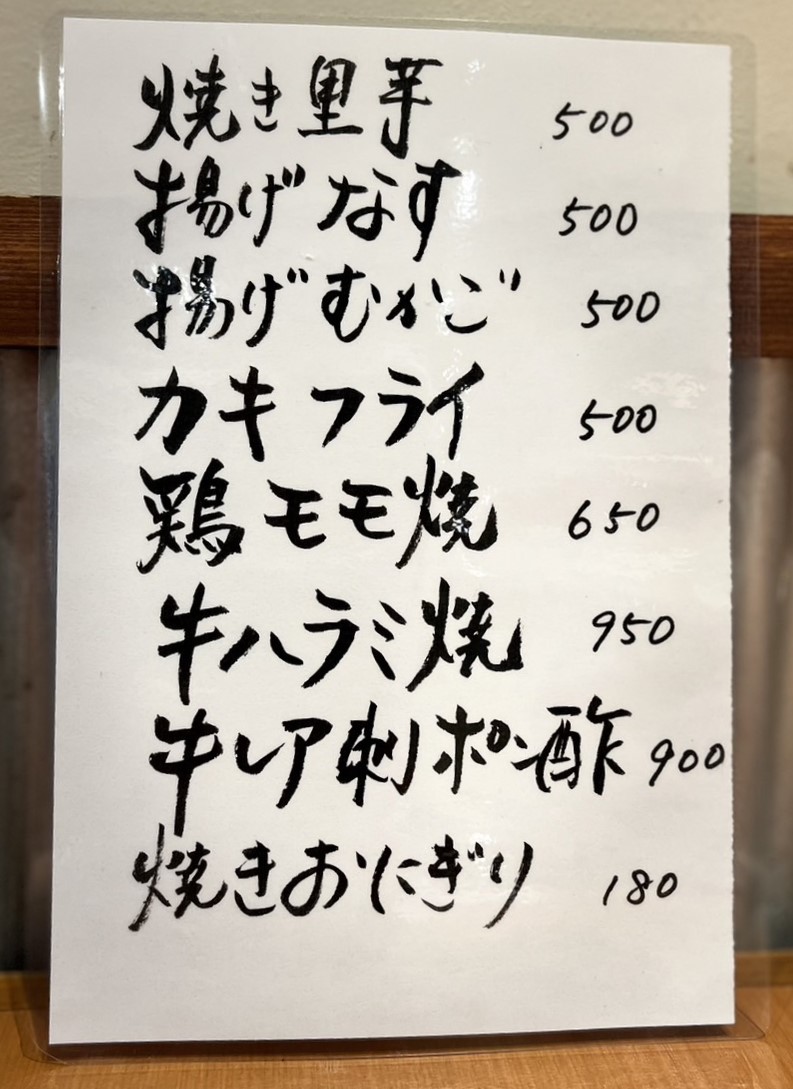 焼き里芋 500
揚げなす 500
揚げむかご 500
カキフライ 500
鶏モモ焼 650
牛ハラミ焼 950
牛レア刺ポン酢 900
焼きおにぎり 180